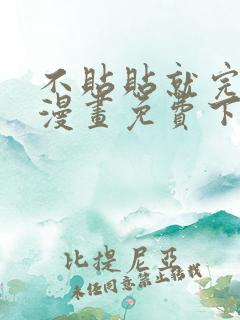 不貼貼就完
漫畫免費下
比提尼亞
未经同意禁止转载